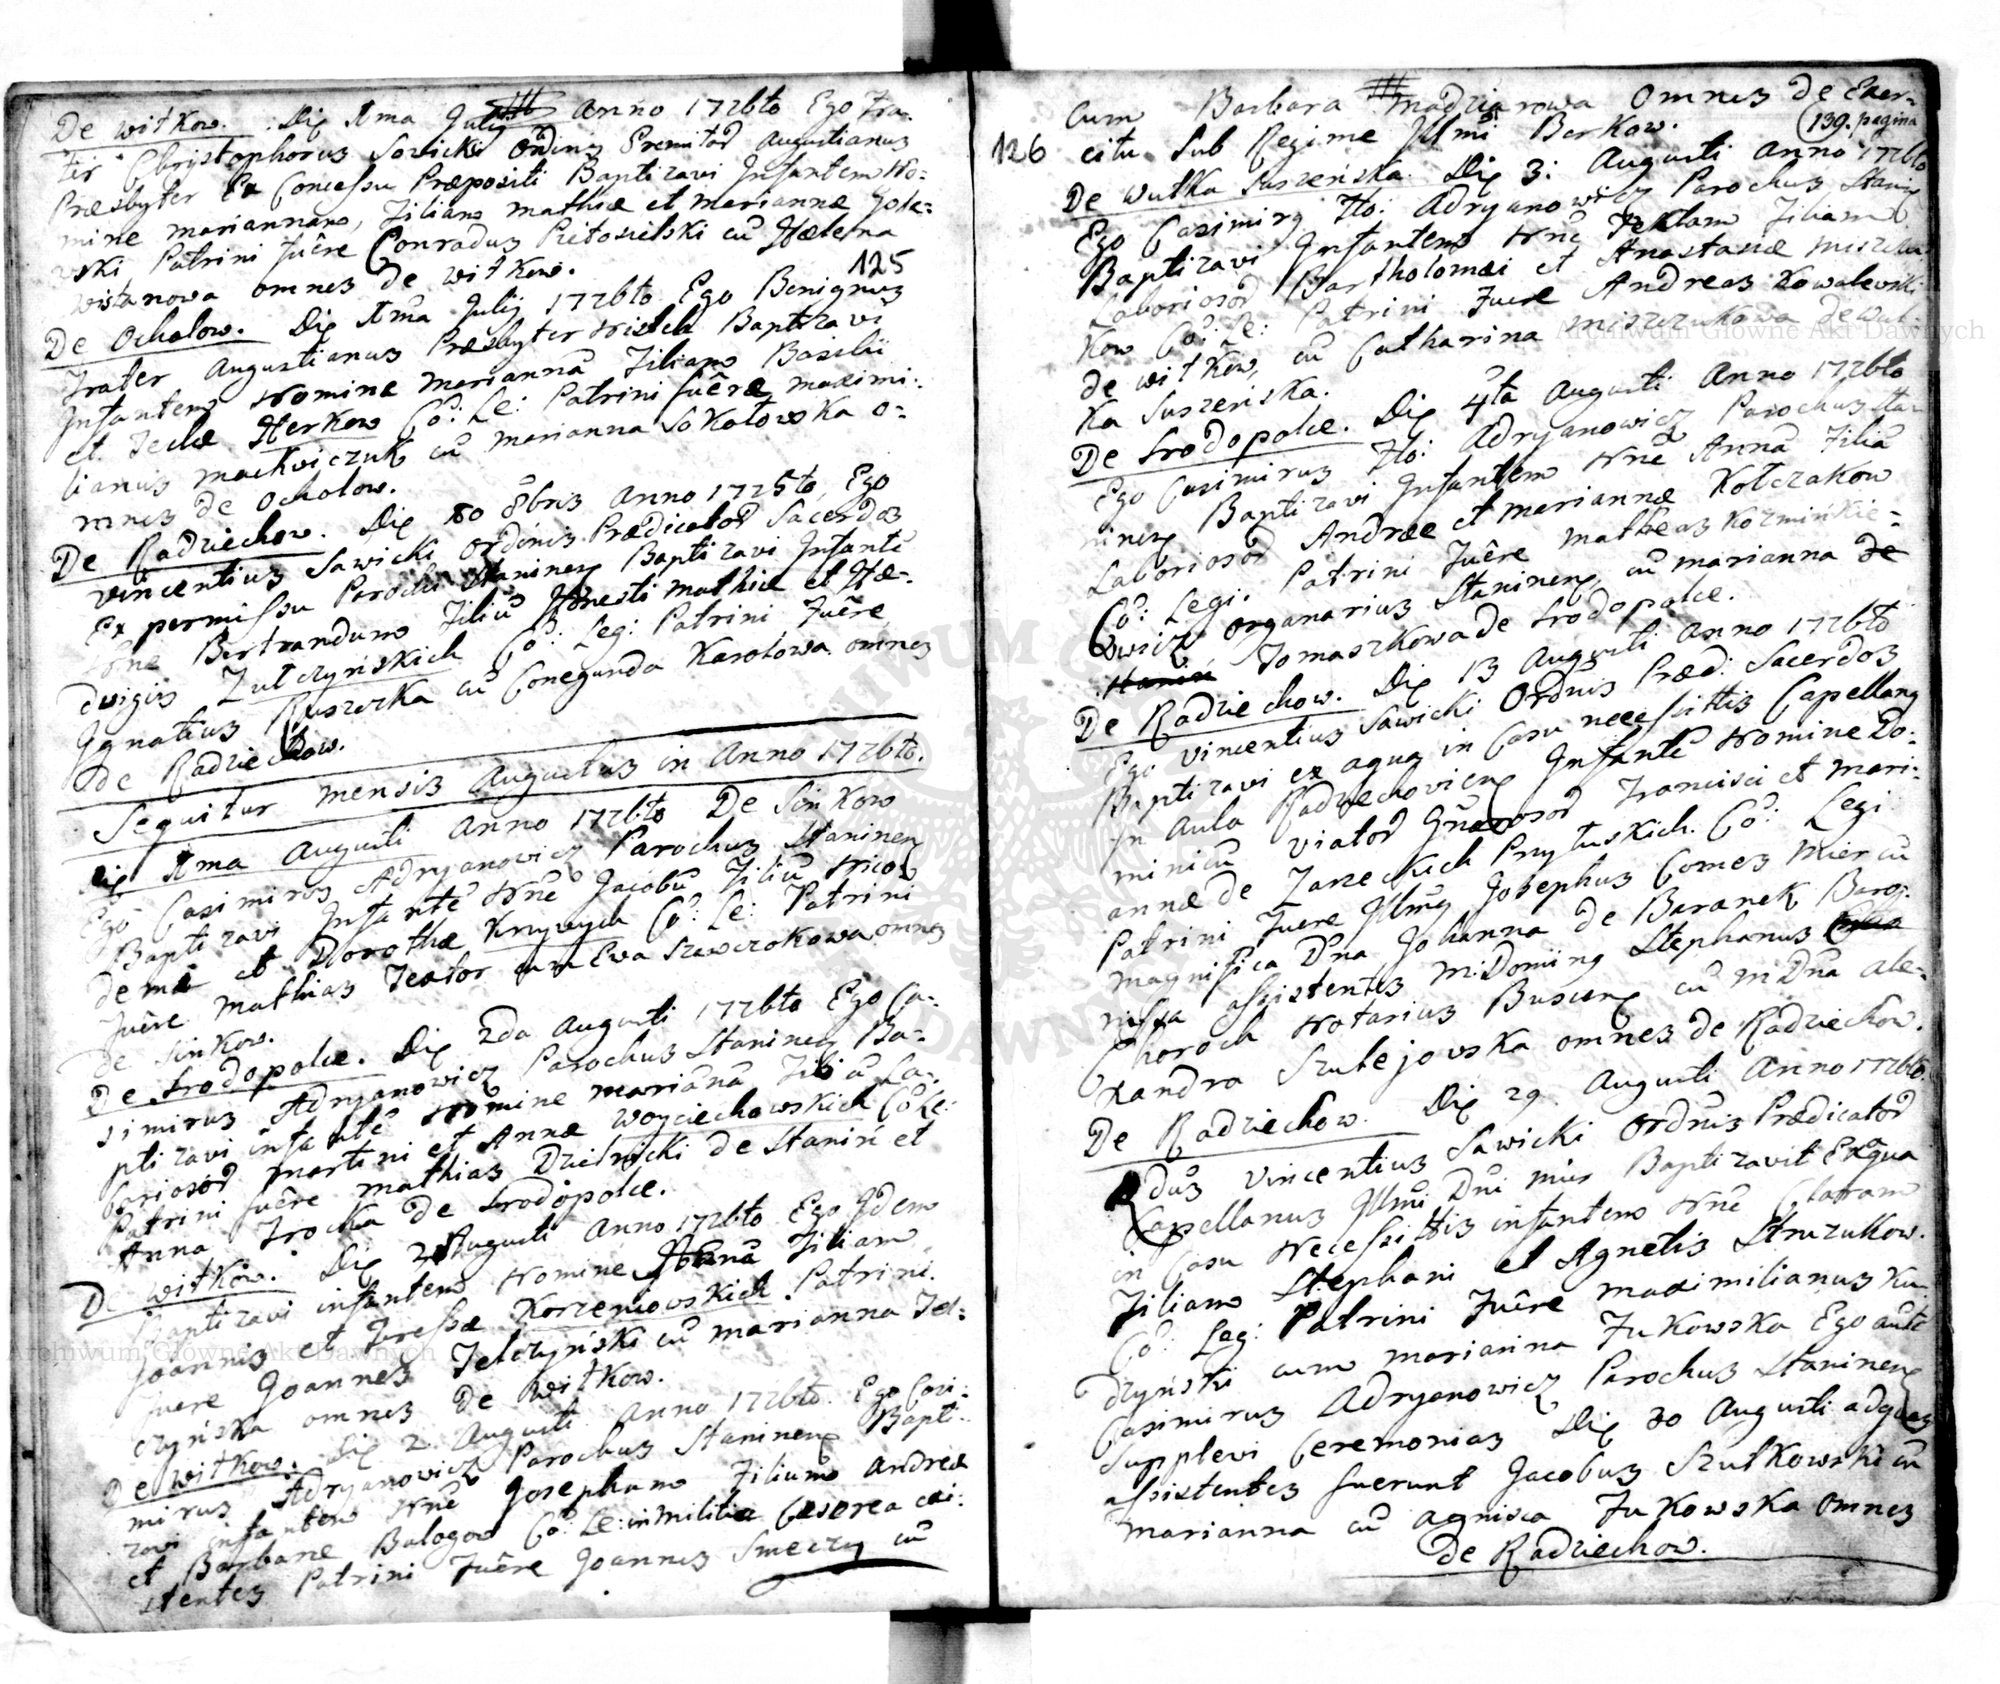 De Witkow. Die 1ma July Anno 1726to Ego Fra-
ter Christophorus Sowicki Ordinis Eremitar Augustianus
Præsbyter Ex Concessu Præpositi Baptizavi Infantem No-
mine Mariannam, Filiam Mathiæ et Mariannæ
wski Patrini fuêre Conradus cū Helena
omnes de Witkow.
125
De Ocholow. Die 1ma July 1726to Ego Benignus
Frater Augustianus Præsbyter Baptizavi
Infantem Nomine Mariannā Filiam Basilii
et Teclæ Herkow Co: Le: Patrini fuêre Maximi-
lianus Mackviczuk cū Marianna Sokołowska o-
mnes de Ocholow.
De Radziechow. Die 80 8bris Anno 1725to, Ego
Vincentius Sawicki Ordinis Prædicator Sacerdos
Ex permissu Parochi Staninen Baptizavi Infantē
Nne Bertrandum Filiū Honesti Mathiæ et He-
dvigis Zulczyńskich Co: Leg: Patrini Fuêre
Ignatius Ruszczka cū Conegunda Karolowa omnes
de Radziechow.
Sequitur Mensis Augustus in Anno 1726to.
Die 1ma Augusti Anno 1726to De Sinkow
Ego Casimirus Adryanowicz Parochus Staninen
Baptizavi Infantē Nne Jacobū Filiū Nico
demi et Dorothæ Krzywych Co: Le: Patrini
Fuêre Mathias Textor cum Eva Szawczokowa omnes
de Sinkow.
De Srodopolce. Die 2da Augusti 1726to Ego Ca-
simirus Adryanowicz Parochus Staninen Ba-
ptizavi infantē Nomine Mariānā Filiā La-
boriosor Martini et Annæ Woyciechowskich Co Le:
Patrini fuêre Mathias Dzielnicki de Stanin et
Anna Trocka de Srodopolce.
De Witkow. Die 2 Augusti Anno 1726to Ego Idem
Baptizavi infantem Nomine Filiam
Joannis et Teressæ Korzeniowskich Patrini
fuere Joannes Telczyński cū Marianna Tel-
czyńska omnes De Witkow.
De Witkow. Die 2 Augusti Anno 1726to. Ego Casi-
mirus Adryanowicz Parochus Staninen Bapti-
zavi infantem Nne Josephum Filium Andreæ
et Barbaræ Balogow Co: Le: in Militia Cæsarea exi-
stentes Patrini Fuêre Joannes Smeczy cū
Cum Barbara Madziarowa Omnes de Exer-
126 citu Sub Regime Illmi Berkow.
(139. pagina
De Wulka Suszeńska. Die 3: Augusti Anno 1726to
Ego Casimirg Flo: Adryanowicz Parochus Stanin
Baptizavi Infantem Nne Teklam Filiam
Laboriosor Bartholomæi et Anastasiæ
Kow Co: Le: Patrini Fuere Andreas Kowalewski
de Witkow, cū Catharina Miszczukowa de Wul-
ka Suszeńska.
De Srodopolce. Die 4ta Augusti Anno 1726to
Ego Casimirus Flo: Adryanowicz Parochus Sta-
ninen Baptizavi Infantem Nne Annā Filiā
Laboriosor Andreæ et Mariannæ Kołczakow
Co: Legi: Patrini Fuêre Matheas Kozminkie-
wicz Organarius Staninen, cū Marianna de
Stanin Tomaszkowa de Srodopolce.
De Radziechow. Die 13 Augusti Anno 1726to
Ego Vincentius Sawicki Ordnis Præd: Sacerdos
Baptizavi ex aqua in Casu necessittis Capellang
in Aula Radziechovien Infantē Nomine Do-
minicū Viator Gnerosor Francisci et Mari-
annæ de Zarzeckich Przyłuskich. Co: Legi
Patrini Fuere Illmg Josephus Comes Mier cū
Magnifica Dna Johanna de Baranek
assistentes M: Doming Stephanus
Choroch Notarius Buscen cū M Dna Ale-
xandra Szulejowska omnes de Radziechow.
De Radziechow. Die 29. Augusti Anno 1726to.
Rdus Vincentius Sawicki Ordnis Prædicator
Capellanus Illmi Dni Baptizavit Ex aqua
in Casu Necessittis infantem Nne Claram
Filiam Stephani et Agnetis Struzukow.
Co: Leg: Patrini Fuêre Maximilianus Ku
dzyński cum Marianna Fukowska Ego autē
Casimirus Adryanowicz Parochus Staninen
Supplevi Ceremonias Die 30 Augusti ad quas
assistentes fuerunt Jacobus Szutkowski cū
Marianna cū Agnisca Fukowska Omnes
de Radziechow.
Archiwum Główne Akt Dawnych
Archiwum Główne Akt Dawnych